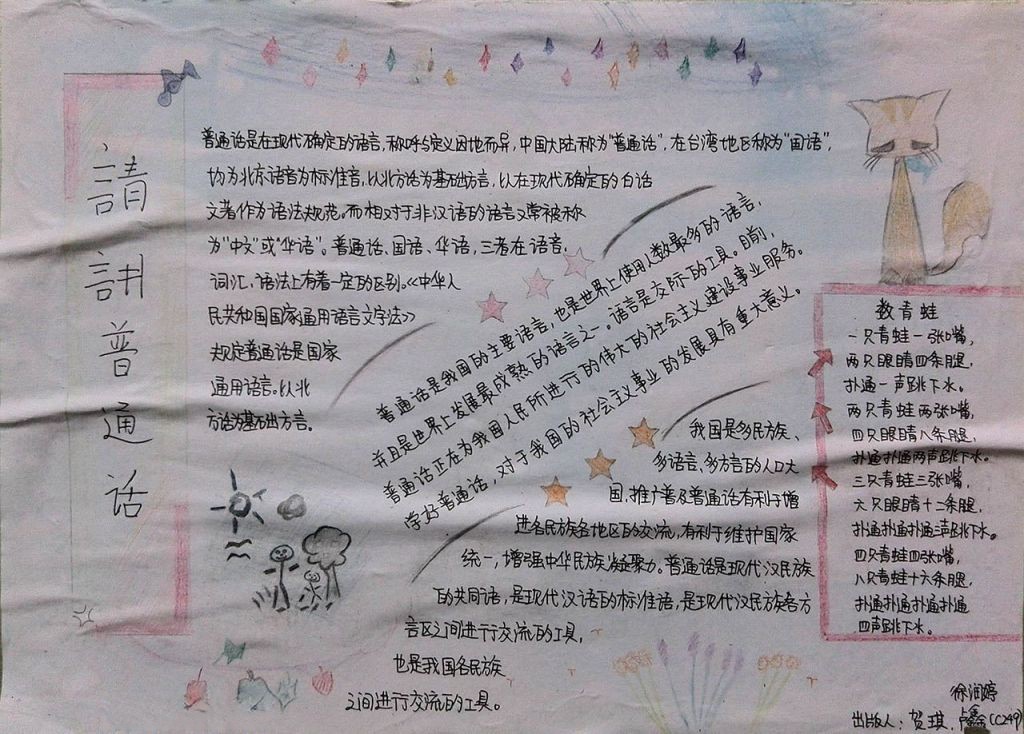 請講普通话
普通话是在现代确定的语言,称呼与定义因地而异,中国大陆称为"普通话",在台湾地区称为"国语",
均为北京语音为标准音,以北方话为基础方言,以在现代确定的白话
文著作为语法规范。而相对于非汉语的语言又常被称
为"中文"或"华语"。普通话、国语、华语,三者在语音,
词汇,语法上有着一定的区别。《中华人
民共和国国家通用语言文字法》
规定普通话是国家
通用语言。以北
方话为基础方言。
普通话是我国的主要语言,也是世界上使用人数最多的语言,
并且是世界上发展最成熟的语言之一。语言是交际的工具。目前,
普通话正在为我国人民所进行的伟大的社会主义建设事业服务。
学好普通话,对于我国的社会主义事业的发展具有重大意义。
我国是多民族、
多语言,多方言的人口大
国,推广普及普通话有利于增
进各民族各地区的交流,有利于维护国家
统一,增强中华民族凝聚力。普通话是现代汉民族
的共同语,是现代汉语的标准语,是现代汉民族各方
言区之间进行交流的工具,
也是我国各民族
之间进行交流的工具。
数青蛙
一只青蛙一张嘴,
两只眼睛四条腿,
扑通一声跳下水。
两只青蛙两张嘴,
四只眼睛八条腿,
扑通扑通两声跳下水。
三只青蛙三张嘴,
六只眼睛十二条腿,
扑通扑通扑通三声跳下水。
四只青蛙四张嘴,
八只青蛙十六条腿,
扑通扑通扑通扑通
四声跳下水。
徐润婷
出版人:贺琪,卢鑫(C249)